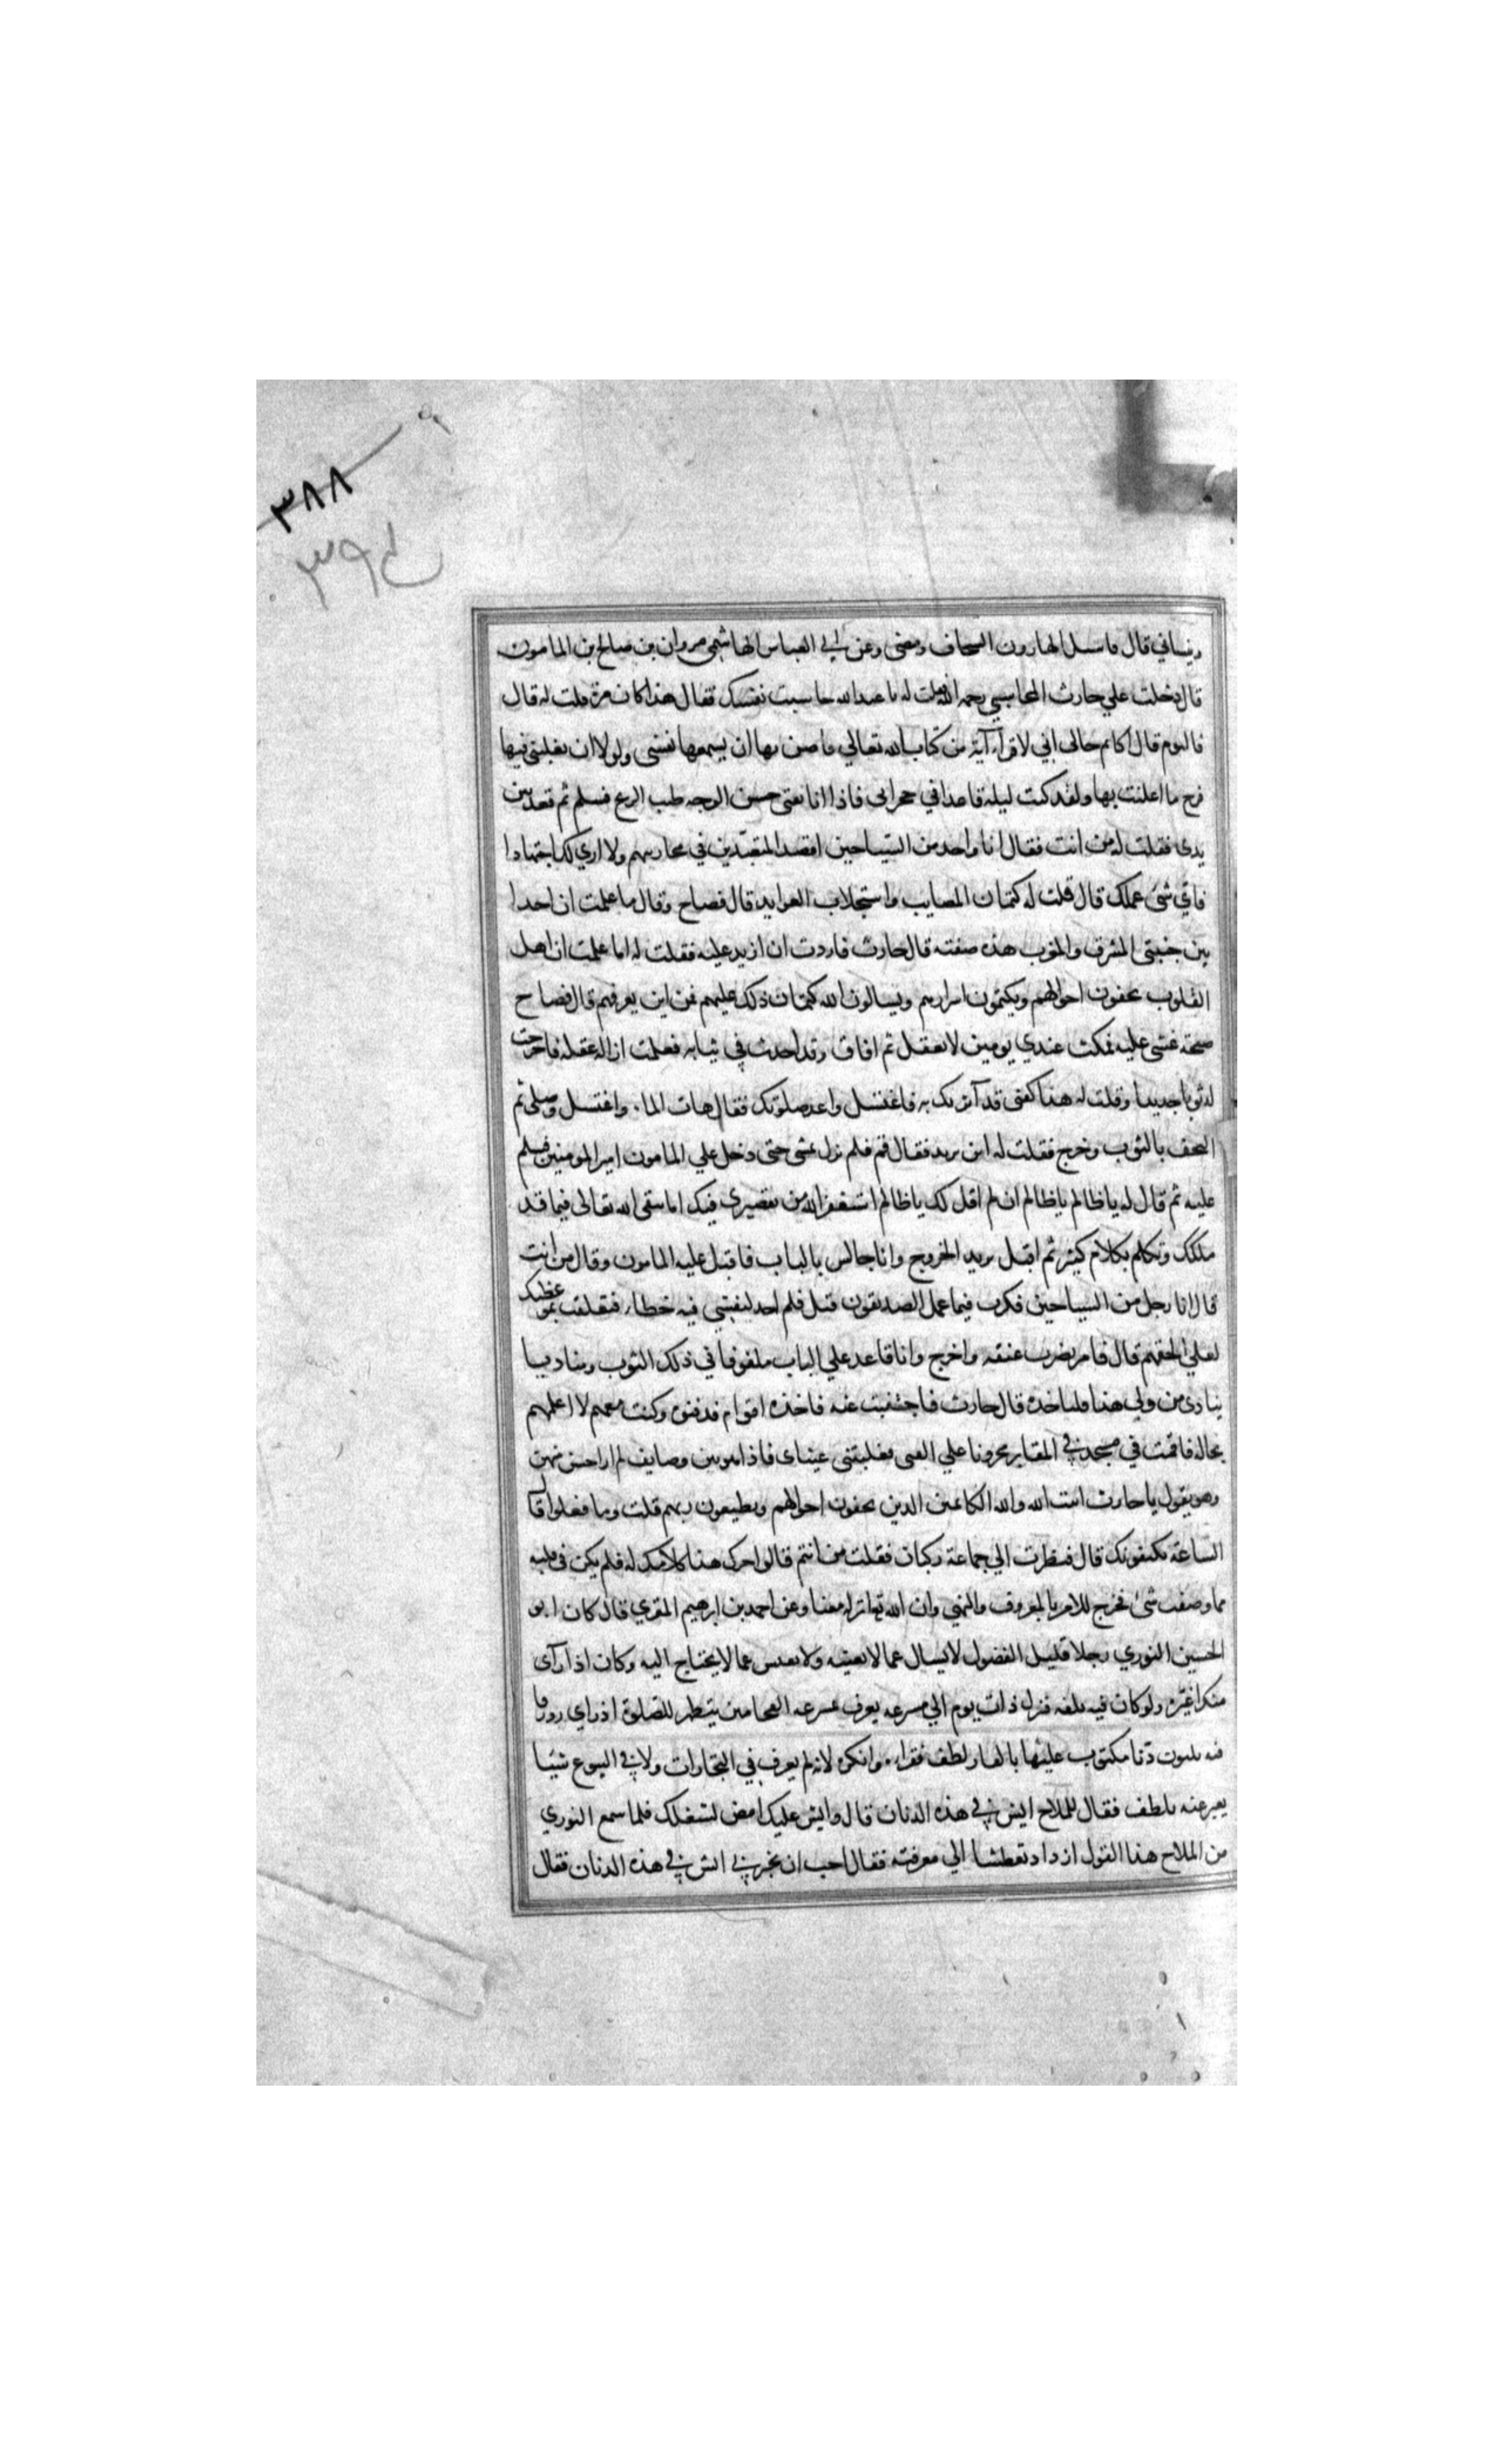 ٣٨٨
٣٩٤
قال ما سبيل الهارون ومضى وعن ابي العباس الهاشمي مروان بن صالح بن المامون
قال دخلت علي حارث المحاسبي رحمه الله فقلت له يا عبد الله حاسبت نفسك فقال هذا كان مرة قلت له قال
فاليوم قال اكاتم حالي اني لاقراء آية من كتاب الله تعالي فاضن بها ان يسمعها نفسي ولولا ان يغلبني فيها
فرح ما اعلنت بها ولقد كنت ليلة قاعدا في محرابي فاذا انا بفتى حسن الوجه طيب الريح فسلم ثم قعد بين
يدى فقلت له من انت فقال انا واحد من السياحين اقصد المتعبدين في محاريبهم ولا اري لك اجتهادا
فاي شئ عملك قال قلت له كتمان المصايب واستجلاب الفوايد قال فصاح وقال ما علمت ان احدا
بين جنبتي المشرق والمغرب هذه صفته قال حارث فاردت ان ازيد عليه فقلت له اما علمت ان اهل
القلوب يخفون احوالهم ويكتمون اسرارهم ويسالون الله كتمان ذلك عليهم فمن اين يعرفهم قال فصاح
صيحة غشي عليه فمكث عندي يومين لا يعقل ثم افاق وقد احدث في ثيابه فعلمت ازالة عقله فاخرجت
له ثوبا جديدا وقلت له هذا كفني قد آثرتك به فاغتسل واعد صلوتك فقال هات الماء واغتسل وصلى ثم
التحف بالثوب وخرج فقلت له اين تريد فقال قم فلم نزل نمشى حتى دخل علي المامون امير المومنين فسلم
عليه ثم قال له يا ظالم يا ظالم ان لم اقل لك يا ظالم استغفر الله من تقصيرى فيك اما تتقي الله تعالى فيما قد
ملكك وتكلم بكلام كثير ثم اقبل يريد الخروج وانا جالس بالباب فاقبل عليه المامون وقال من انت
قال انا رجل من السياحين فكرت فيما عمل الصديقون قبل فلم اجد لنفسي فيه خطاء فتعلقت بموعظتك
لعلي الحقهم قال فامر بضرب عنقه واخرج وانا قاعد علي الباب ملفوفا في ذلك الثوب ومناديا
ينادى من ولي هذا فلياخذه قال حارث فاجتنبت عنه فاخذه اقوام فدفنوه وكنت معهم لا اعلمهم
بحاله فاقمت في مسجد في المقابر محزونا علي الفتى فغلبتني عيناى فاذا هو بين وصايف لم ار احسن منهن
وهو يقول يا حارث انت الله والله الكاتمين الذين يخفون احوالهم ويطيعون ربهم قلت وما فعلوا قال
الساعة قال فنظرت الي جماعة ركبان فقلت من انتم قالوا حرك هذا كلامك له فلم يكن في قلبه
مما وصفت شئ فخرج للامر بالمعروف والنهي وان الله تعالى انزله معنا وعن احمد بن ابرهيم المقري قال كان ابو
الحسين النوري رجلا قليل الفضول لا يسال عما لا يعنيه ولا يفتش عما لا يحتاج اليه وكان اذا رآى
منكرا غيره ولو كان فيه تلفه فنزل ذات يوم الي مشرعة يعرف بمشرعة الفحامين يتطهر للصلوة اذ راي زورقا
فيه ثلثون دنا مكتوب عليها بالقار لطف فقراه وانكره لانه لم يعرف في التجارات ولا في البيوع شيئا
يعبر عنه بلطف فقال للملاح ايش في هذه الدنان قال وايش عليك امض لشغلك فلما سمع النوري
من الملاح هذا القول ازداد تعطشا الي معرفته فقال احب ان تخبرني ايش في هذه الدنان فقال